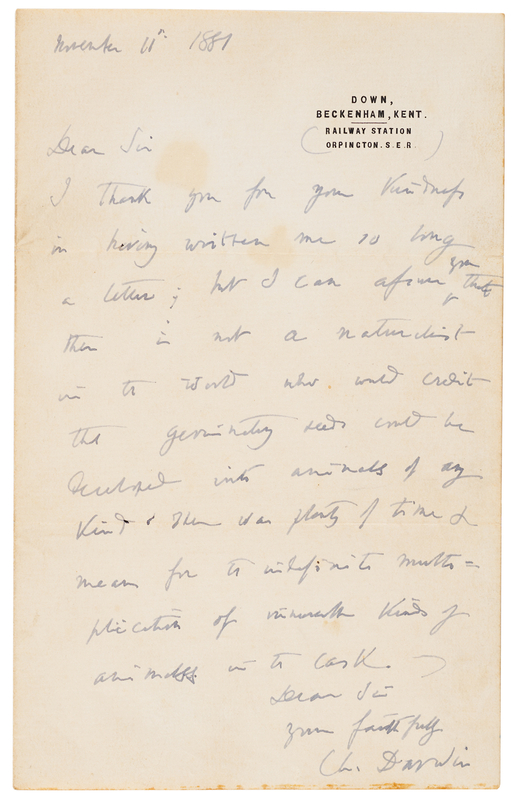 November 11th 1881
DOWN,
BECKENHAM, KENT.
RAILWAY STATION
ORPINGTON. S.E.R.
Dear Sir
I thank you for your kindness
in having written me so long
a letter; but I can assure you that
there is not a naturalist
in the world who would credit
that germinating seeds could be
developed into animals of any
kind & there was plenty of time &
means for the indefinite multi=
plication of innumerable kinds of
animals in the cask. —
Dear Sir
yours faithfully
Ch. Darwin